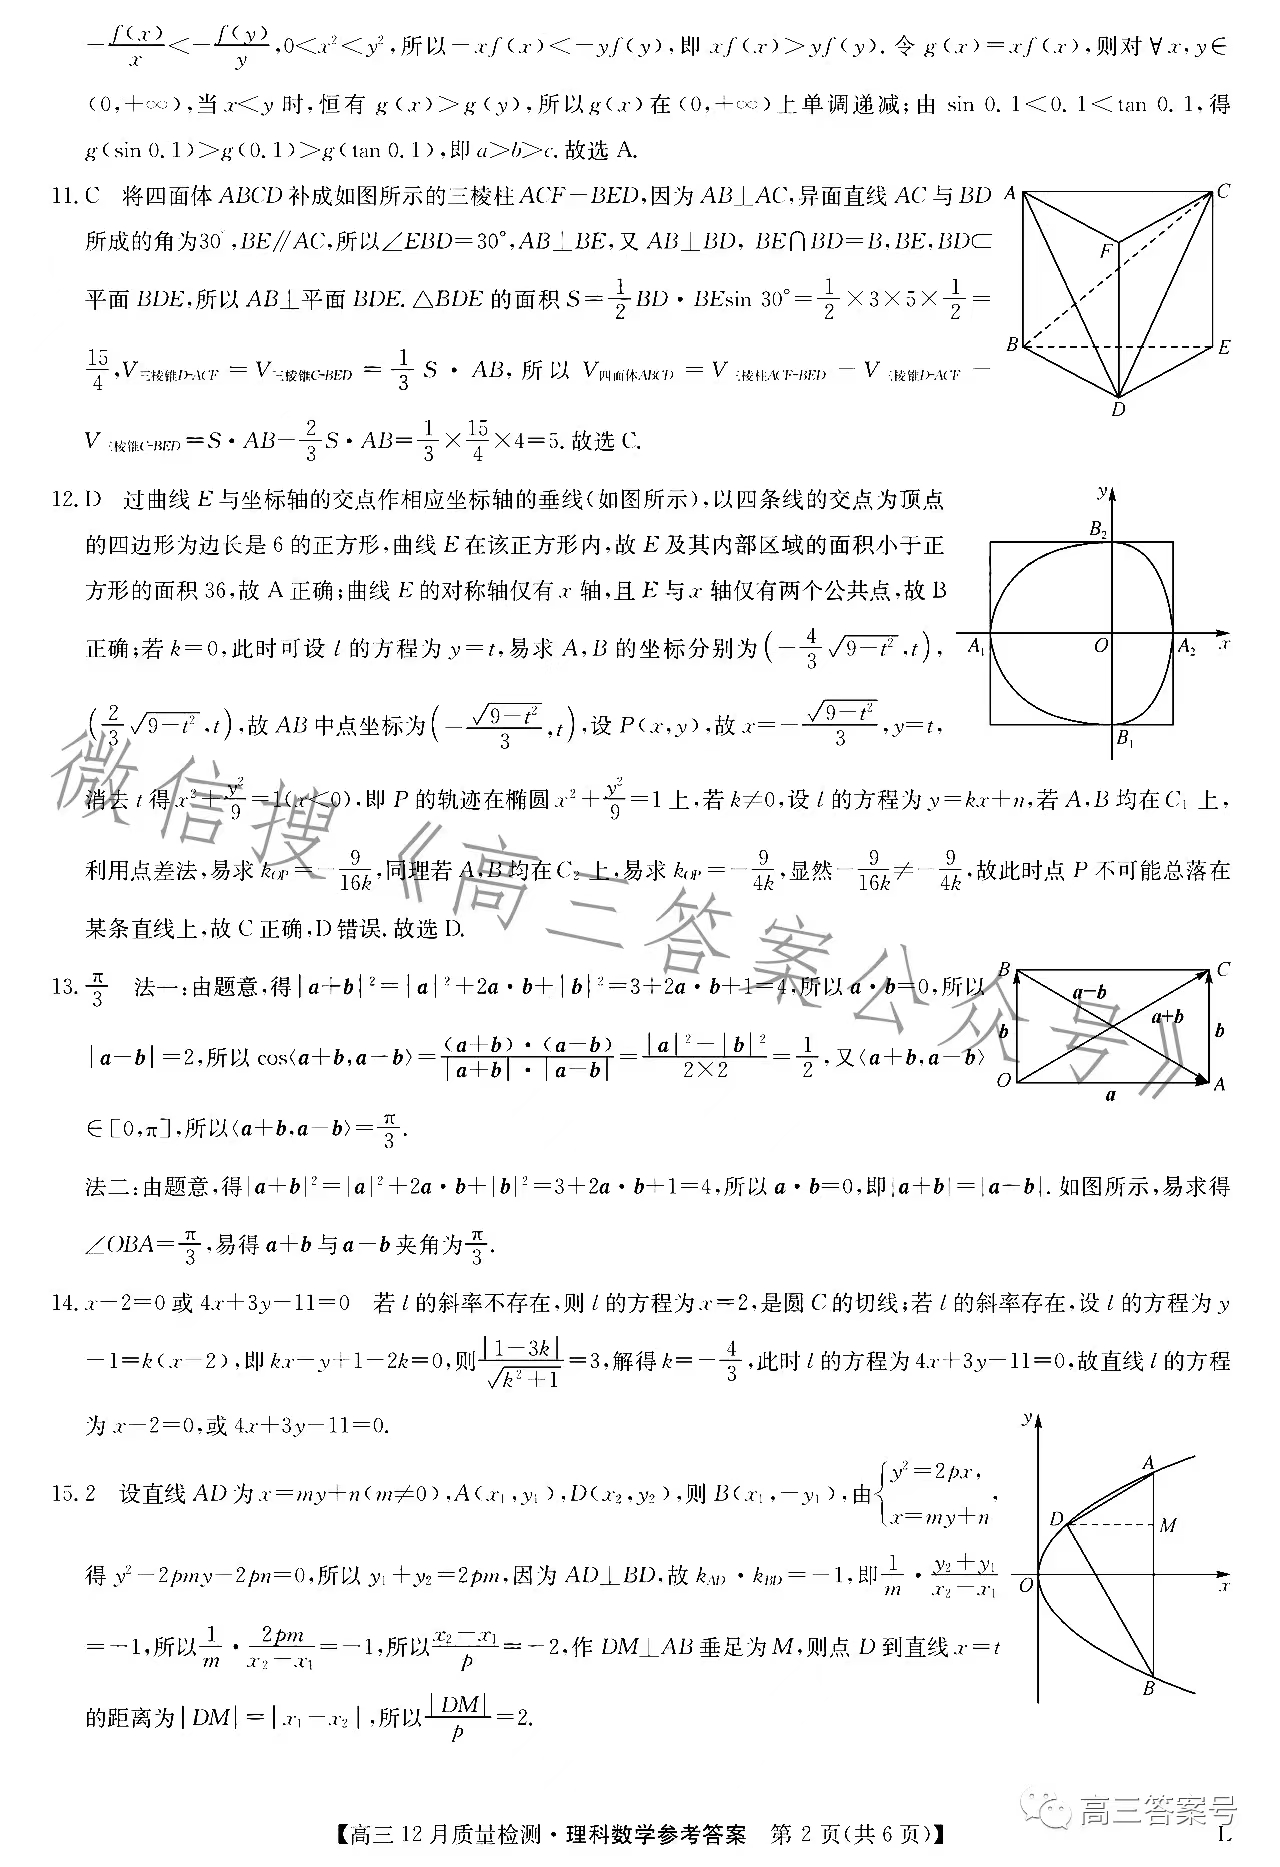 −f(x)/x<−f(y)/y,0<x²<y²,所以−xf(x)<−yf(y),即 xf(x)>yf(y). 令 g(x)=xf(x),则对∀x,y∈
(0,+∞),当 x<y 时,恒有 g(x)>g(y),所以g(x)在(0,+∞)上单调递减;由 sin 0.1<0.1<tan 0.1,得
g(sin 0.1)>g(0.1)>g(tan 0.1),即 a>b>c. 故选 A.
11. C 将四面体 ABCD 补成如图所示的三棱柱 ACF−BED,因为 AB⊥AC,异面直线 AC 与 BD
所成的角为30°,BE∥AC,所以∠EBD=30°,AB⊥BE,又 AB⊥BD, BE∩BD=B,BE,BD⊂
平面 BDE,所以 AB⊥平面 BDE. △BDE 的面积 S=1/2 BD·BEsin 30°=1/2×3×5×1/2=
15/4,V三棱锥D-ACF=V三棱锥C-BED=1/3 S·AB, 所以 V四面体ABCD=V三棱柱ACF-BED−V三棱锥D-ACF−
V三棱锥C-BED=S·AB−2/3 S·AB=1/3×15/4×4=5. 故选 C.
A
C
F
B
E
D
12. D 过曲线 E 与坐标轴的交点作相应坐标轴的垂线(如图所示),以四条线的交点为顶点
的四边形为边长是 6 的正方形,曲线 E 在该正方形内,故 E 及其内部区域的面积小于正
方形的面积 36,故 A 正确;曲线 E 的对称轴仅有 x 轴,且 E 与 x 轴仅有两个公共点,故 B
正确;若 k=0,此时可设 l 的方程为 y=t,易求 A,B 的坐标分别为(−4/3√(9−t²),t),
(2/3√(9−t²),t),故 AB 中点坐标为(−√(9−t²)/3,t),设 P(x,y),故 x=−√(9−t²)/3,y=t,
消去 t 得 x²+y²/9=1(x<0),即 P 的轨迹在椭圆 x²+y²/9=1 上,若 k≠0,设 l 的方程为 y=kx+n,若 A,B 均在C₁ 上,
利用点差法,易求 kOP=−9/16k,同理若 A,B 均在 C₂ 上,易求 kOP=−9/4k,显然−9/16k≠−9/4k,故此时点 P 不可能总落在
某条直线上,故 C 正确,D 错误. 故选 D.
y
B₂
A₁
O
A₂
x
B₁
13. π/3 法一:由题意,得|a+b|²=|a|²+2a·b+|b|²=3+2a·b+1=4,所以 a·b=0,所以
|a−b|=2,所以 cos⟨a+b,a−b⟩=(a+b)·(a−b)/|a+b|·|a−b|=|a|²−|b|²/2×2=1/2,又⟨a+b,a−b⟩
∈[0,π],所以⟨a+b,a−b⟩=π/3.
法二:由题意,得|a+b|²=|a|²+2a·b+|b|²=3+2a·b+1=4,所以 a·b=0,即|a+b|=|a−b|. 如图所示,易求得
∠OBA=π/3,易得 a+b 与 a−b 夹角为π/3.
B
C
a−b
a+b
b
b
O
A
a
14. x−2=0 或 4x+3y−11=0 若 l 的斜率不存在,则 l 的方程为 x=2,是圆 C 的切线;若 l 的斜率存在,设 l 的方程为 y
−1=k(x−2),即 kx−y+1−2k=0,则|1−3k|/√(k²+1)=3,解得 k=−4/3,此时 l 的方程为 4x+3y−11=0,故直线 l 的方程
为 x−2=0,或 4x+3y−11=0.
15. 2 设直线 AD 为 x=my+n(m≠0),A(x₁,y₁),D(x₂,y₂),则 B(x₁,−y₁),由{y²=2px, x=my+n,
得 y²−2pmy−2pn=0,所以 y₁+y₂=2pm,因为 AD⊥BD,故 kAD·kBD=−1,即1/m·(y₂+y₁)/(x₂−x₁)
=−1,所以1/m·2pm/(x₂−x₁)=−1,所以(x₂−x₁)/p=−2,作 DM⊥AB 垂足为 M,则点 D 到直线 x=t
的距离为|DM|=|x₁−x₂|,所以|DM|/p=2.
y
A
D
M
O
x
B
微信搜《高三答案公众号》
高三答案号
【高三 12 月质量检测·理科数学参考答案 第 2 页(共 6 页)】
L